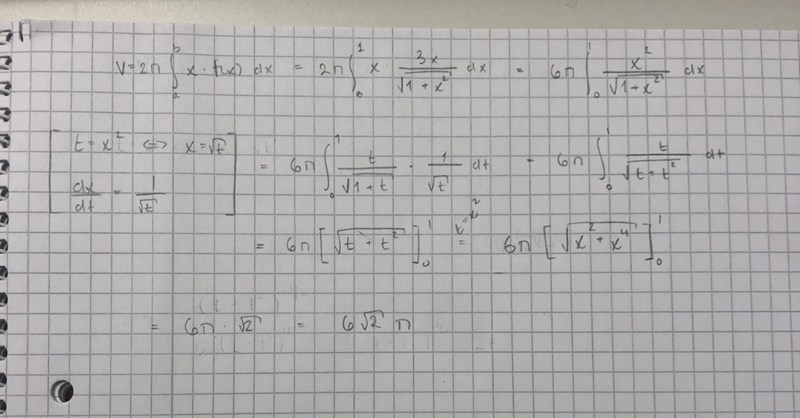 V = 2π ∫_a^b x · f(x) dx = 2π ∫_0^1 x · 3x/√(1 + x²) dx = 6π ∫_0^1 x²/√(1 + x²) dx
[ t = x² ⇔ x = √t
dx/dt = 1/√t ] = 6π ∫_0^1 t/√(1 + t) · 1/√t dt = 6π ∫_0^1 t/√(t + t²) dt
= 6π [ √(t + t²) ]_0^1 t=x² = 6π [ √(x² + x⁴) ]_0^1
= 6π · √2 = 6√2 π